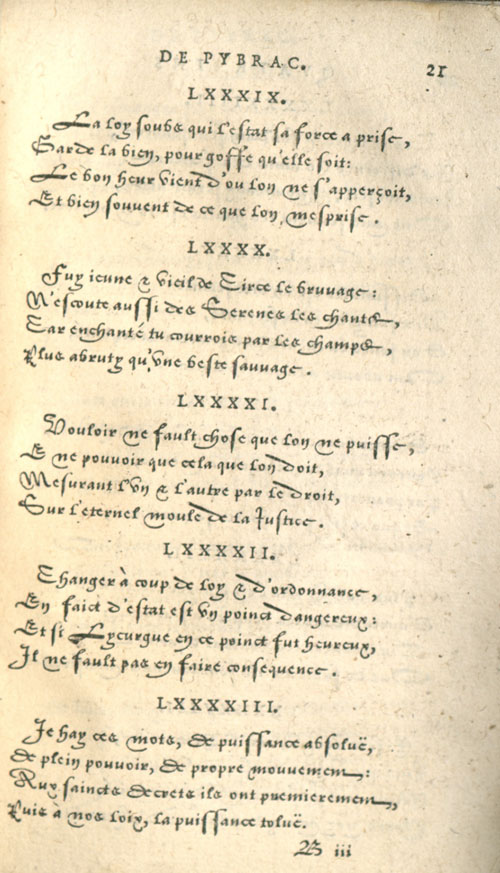 DE PYBRAC.
21
LXXXIX.
La loy soubs qui l'estat sa force a prise,
Garde la bien, pour goffe qu'elle soit:
Le bon heur vient d'ou lon ne s'apperçoit,
Et bien souvent de ce que lon mesprise.
LXXXX.
Fuy ieune & vieil de Circe le bruvage:
N'escoute aussi des Serenes les chants,
Car enchanté tu courrois par les champs,
Plus abruty qu'vne beste sauvage.
LXXXXI.
Vouloir ne fault chose que lon ne puisse,
E ne pouvoir que cela que lon doit,
Mesurant l'vn & l'autre par le droit,
Sur l'eternel moule de la Justice.
LXXXXII.
Changer à coup de loy & d'ordonnance,
En faict d'estat est vn poinct dangereux:
Et si Lycurgue en ce poinct fut heureux,
Il ne fault pas en faire consequence.
LXXXXIII.
Je hay ces mots, de puissance absoluë,
de plein pouvoir, de propre mouvement:
Aux saincts decrets ils ont premierement,
Puis à nos loix, la puissance toluë.
B iii